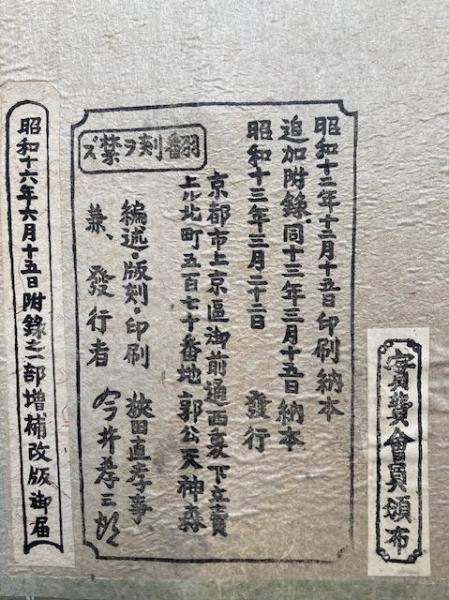 實費會員頒布
昭和十二年十二月十五日印刷納本
追加附錄、同十三年三月十五日納本
昭和十三年三月二十二日　發行
京都市上京區御前通西裏下立賣
上ル北町五百七十番地郭公天神森
編述・版刻・印刷　荻田直孝事
兼、發行者　今井孝三郎
翻刻ヲ禁ズ
昭和十六年六月十五日附錄之一部增補改版御届